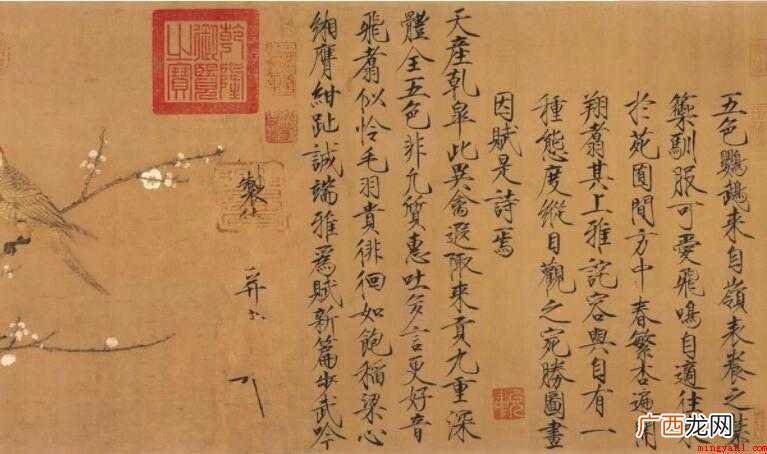 五色鸚鵡來自嶺表養之禁
籞馴服可愛飛鳴自適往來
於苑囿間方中春繁杏遍開
翔翥其上雅詫容與自有一
種態度縱目觀之宛勝圖畫
因賦是詩焉
天産乾皋此異禽遐陬來貢九重深
體全五色非凡質惠吐多言更好音
飛翥似憐毛羽貴徘徊如飽稻粱心
緗膺紺趾誠端雅爲賦新篇步武吟
製
乾隆
御覽
之寶
广西龙网